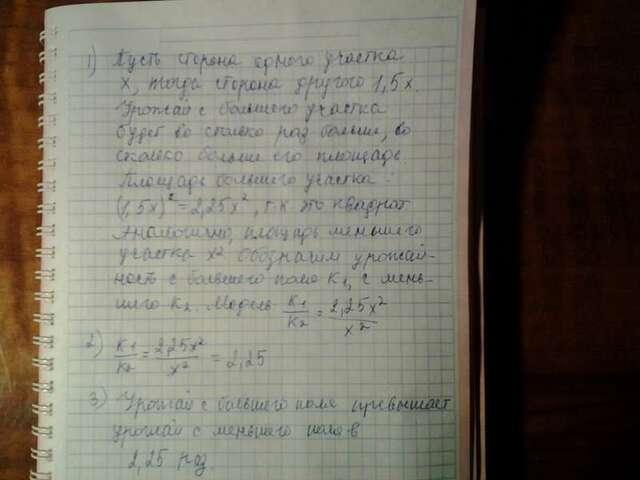 1) Пусть сторона одного участка
x, тогда сторона другого 1,5x.
Урожай с большего участка
будет во столько раз больше, во
сколько больше его площадь.
Площадь большего участка:
(1,5x)² = 2,25x², т.к это квадрат
Аналогично, площадь меньшего
участка x². Обозначим урожай-
ность с большего поля K₁, с мень-
шего K₂. Модель: K₁/K₂ = 2,25x²/x²
2) K₁/K₂ = 2,25x²/x² = 2,25
3) Урожай с большего поля превышает
урожай с меньшего поля в
2,25 раз.